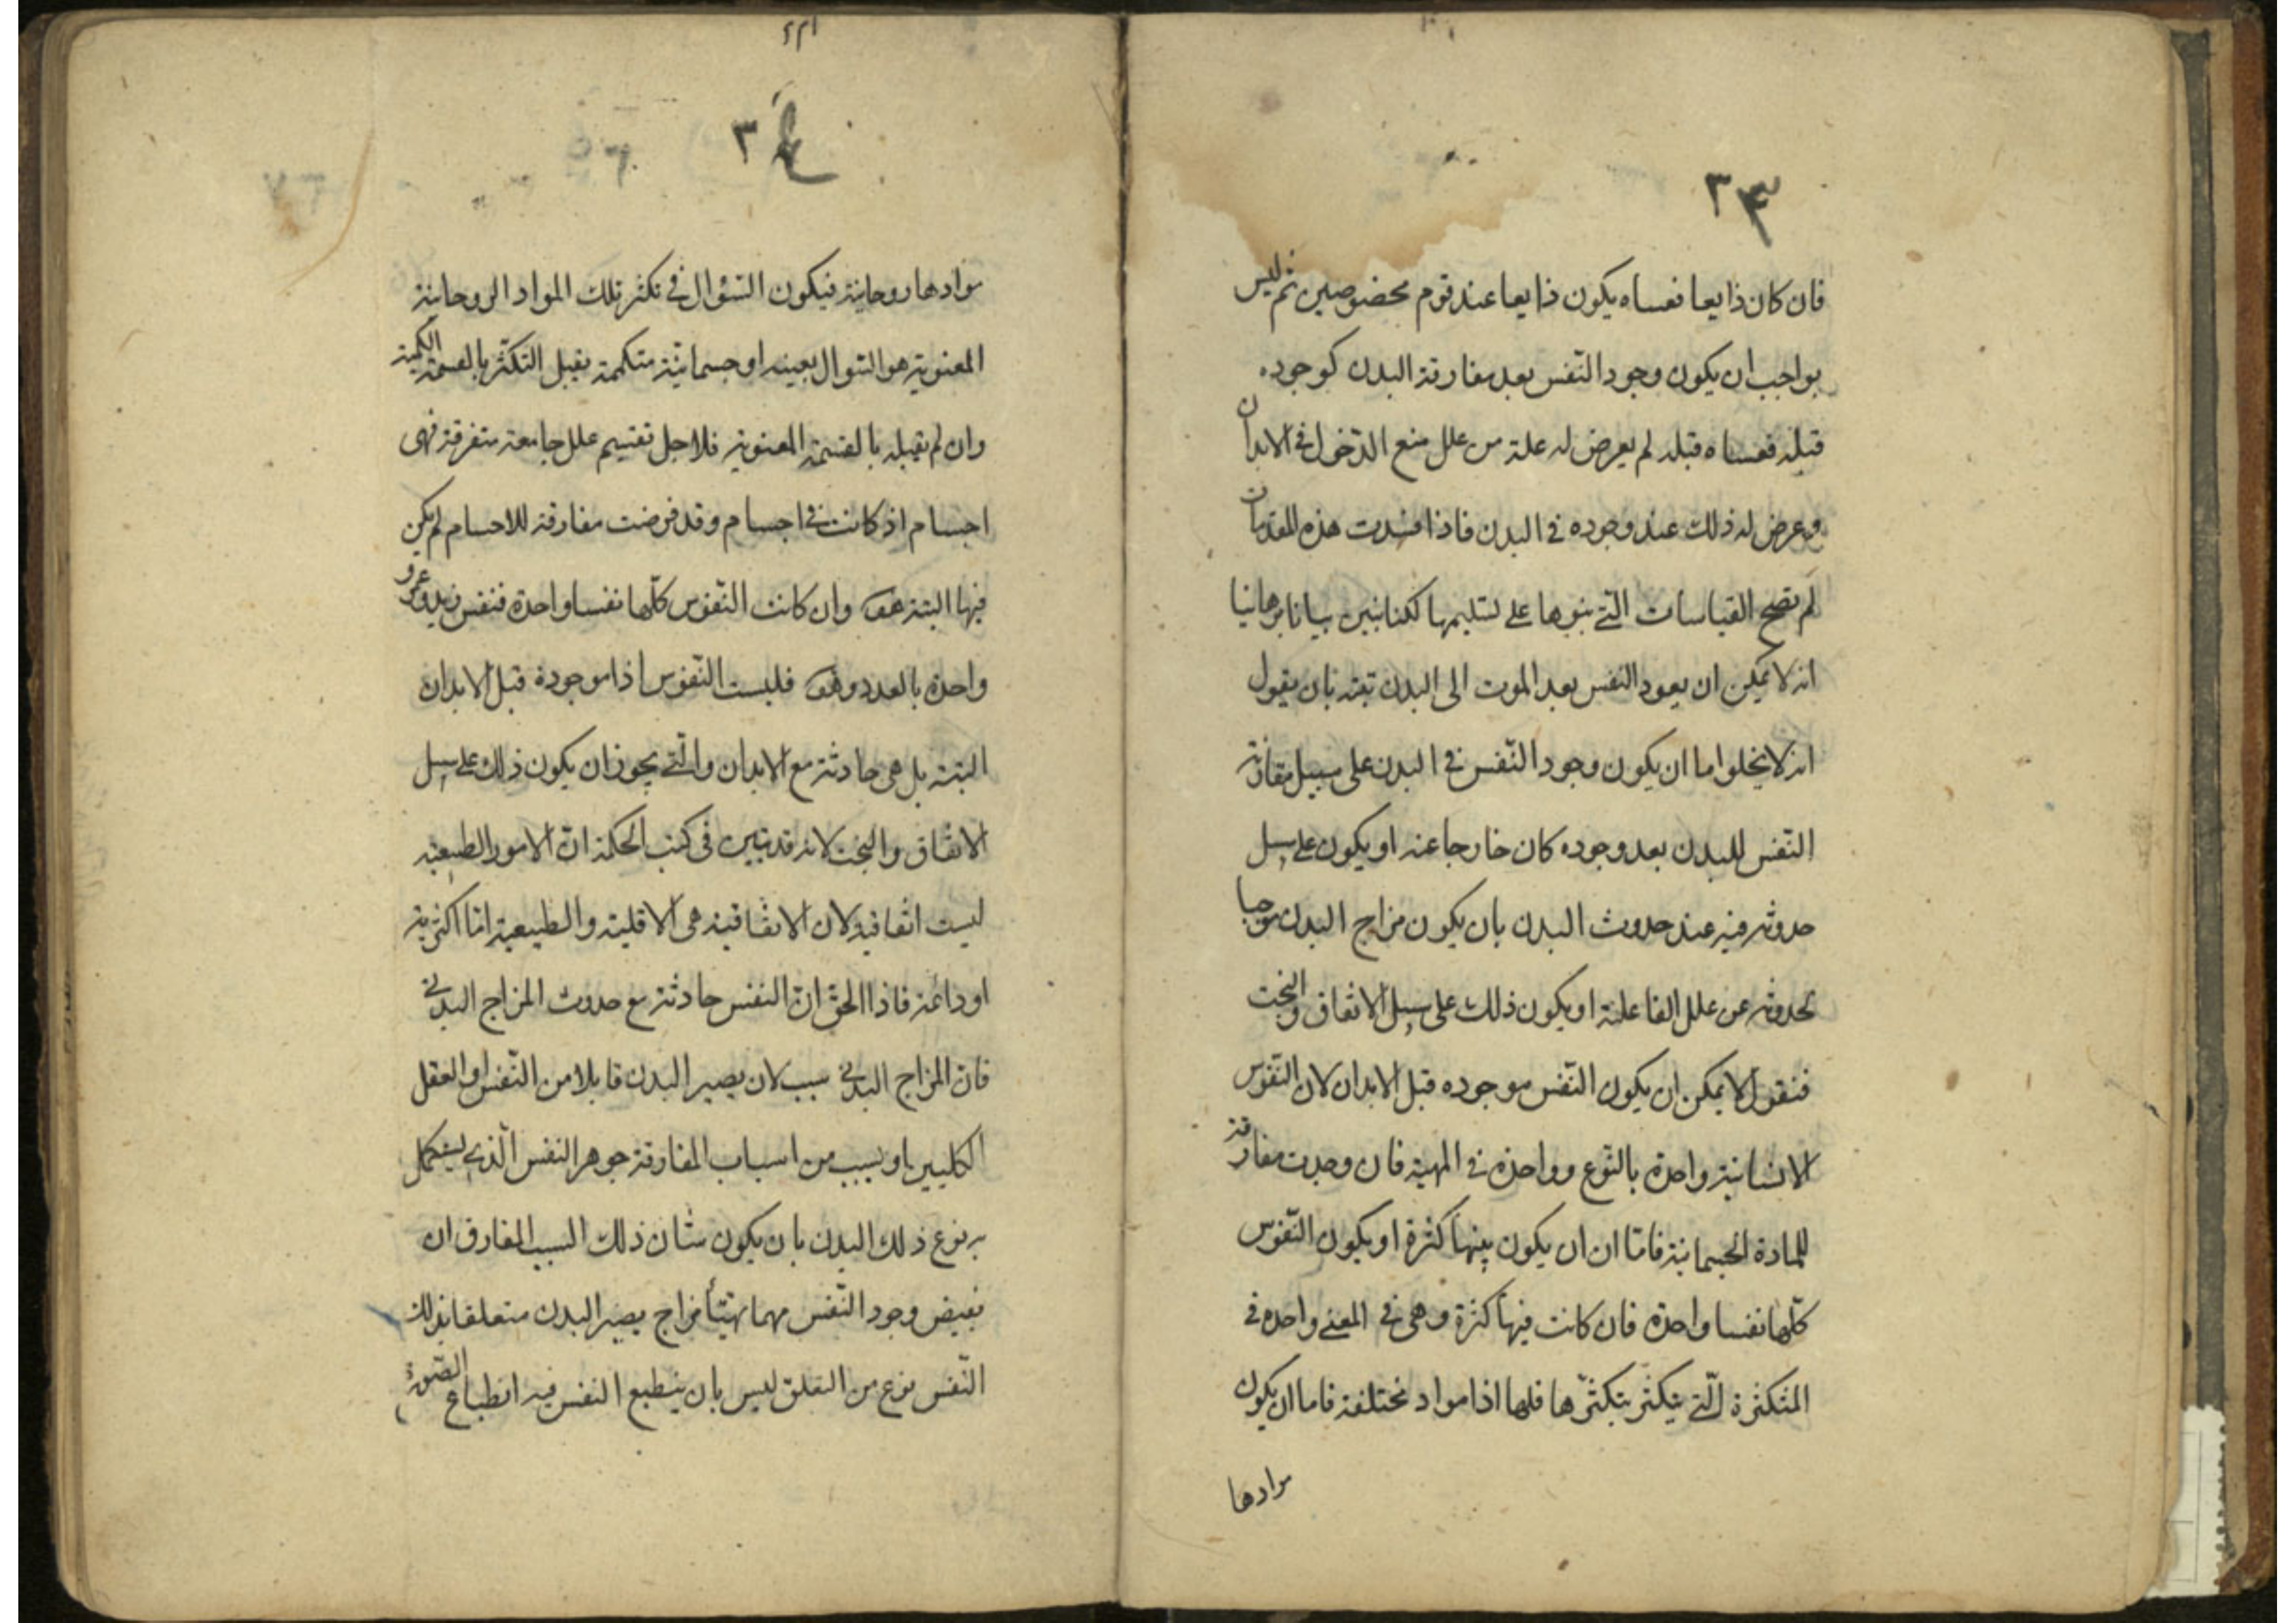 ٢٣
فان كان ذايعا فعساه يكون ذايعا عند قوم مخصوصين ثم ليس
بواجب ان يكون وجود النّفس بعد مفارقة البدن كوجوده
قبله فعساه قبله لم يعرض له علة من علل منع الدّخول فى الابدان
وعرض له ذلك عند وجوده فى البدن فاذا فسدت هذه المقدمات
لم تصح القياسات الّتى بنوها على تسليمها لكنا نبين بيانا برهانيا
انه لا يمكن ان يعود النفس بعد الموت الى البدن بتة بان يقول
انه لا يخلوا اما ان يكون وجود النّفس فى البدن على سبيل مقارنة
النّفس للبدن بعد وجوده كان خارجا عنه او يكون على سبيل
حدوثه فيه عند حدوث البدن بان يكون مزاج البدن موجبا
لحدوثه عن علل الفاعلية او يكون ذلك على سبيل الاتفاق والبخت
فنقول لا يمكن ان يكون النّفس موجوده قبل الابدان لان النّفوس
الانسانية واحدة بالنّوع وواحدة فى المهية فان وجدت مفارقة
للمادة الجسمانية فامّا ان ان يكون بينها كثرة او يكون النّفوس
كلّها نفسا واحدة فان كانت فيها كثرة وهى فى المعنى واحده فى
المتكثرة الّتى يتكثّر بتكثّرها فلها اذا مواد مختلفة فاما ان يكون
موادها
٢
موادها روحانية فيكون السّؤال فى تكثر تلك المواد الروحانية
المعنوية هو السّوال بعينه او جسمانيّة متكممة يقبل التكثّر بالقسمة الكمية
وان لم يقبله بالقسمة المعنوية فلاجل تقسيم علل جامعة متفرقة فهى
اجسام اذ كانت فى اجسام وقد فرضت مفارقة للاجسام لم يكن
فيها البتة هف وان كانت النّفوس كلّها نفسا واحدة فنفس زيد وعمرو
واحدة بالعدد وهف فليست النّفوس اذا موجودة قبل الابدان
البتة بل هى حادثة مع الابدان والّتى يجوز ان يكون ذلك على سبيل
الاتفاق والبخت لانه قد تبين فى كتب الحكمة انّ الامور الطبيعيه
ليست اتفاقية لان الاتفاقية هى الاقلية والطبيعية امّا اكثرية
او دائمة فاذا الحق انّ النفس حادثة مع حدوث المزاج البدنى
فان المزاج البدنى سبب لان يصير البدن قابلا من النّفس او العقل
الكليين او بسبب من اسباب المفارقة جوهر النفس الّذى يستكمل
به نوع ذلك البدن بان يكون شان ذلك السبب المفارق ان
يفيض وجود النّفس مهما تهيّأ مزاج يصير البدن متعلقا بذلك
النّفس نوع من التعلق ليس بان ينطبع النفس فيه انطباع الصّورة